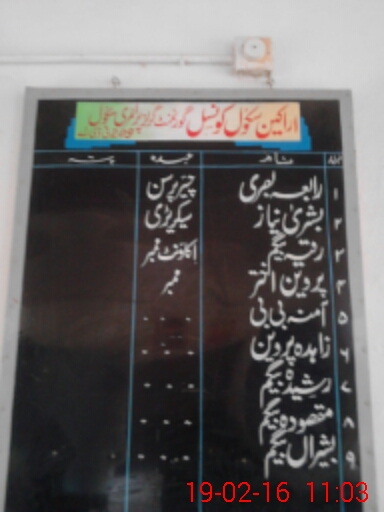 اراکین سکول کونسل گورنمنٹ گرلز پرائمری سکول
نمبر نام عہدہ پتہ
۱ رابعہ بصری چیئرپرسن
۲ بشریٰ نیاز سیکریٹری
۳ رقیہ بیگم اکاؤنٹ ممبر
۴ پروین اختر ممبر
۵ آمنہ بی بی - - -
۶ زاہدہ پروین - - -
۷ رشیدہ بیگم - - -
۸ مقصودہ بیگم - - -
۹ بشیراں بیگم - - -
19-02-16 11:03